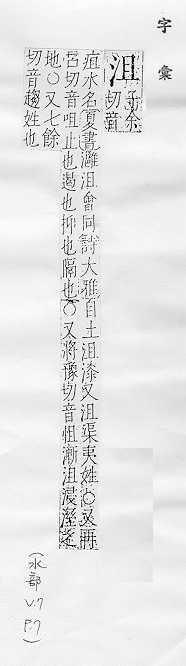 字彙
沮
子余
切音
疽水名夏書灉沮會同詩大雅自土沮漆又沮渠夷姓○又再
呂切音咀止也遏也抑也隔也○又將豫切音怚漸沮浸溼之
地○又七餘
切音趨姓也
(水部 V.7 P.7)